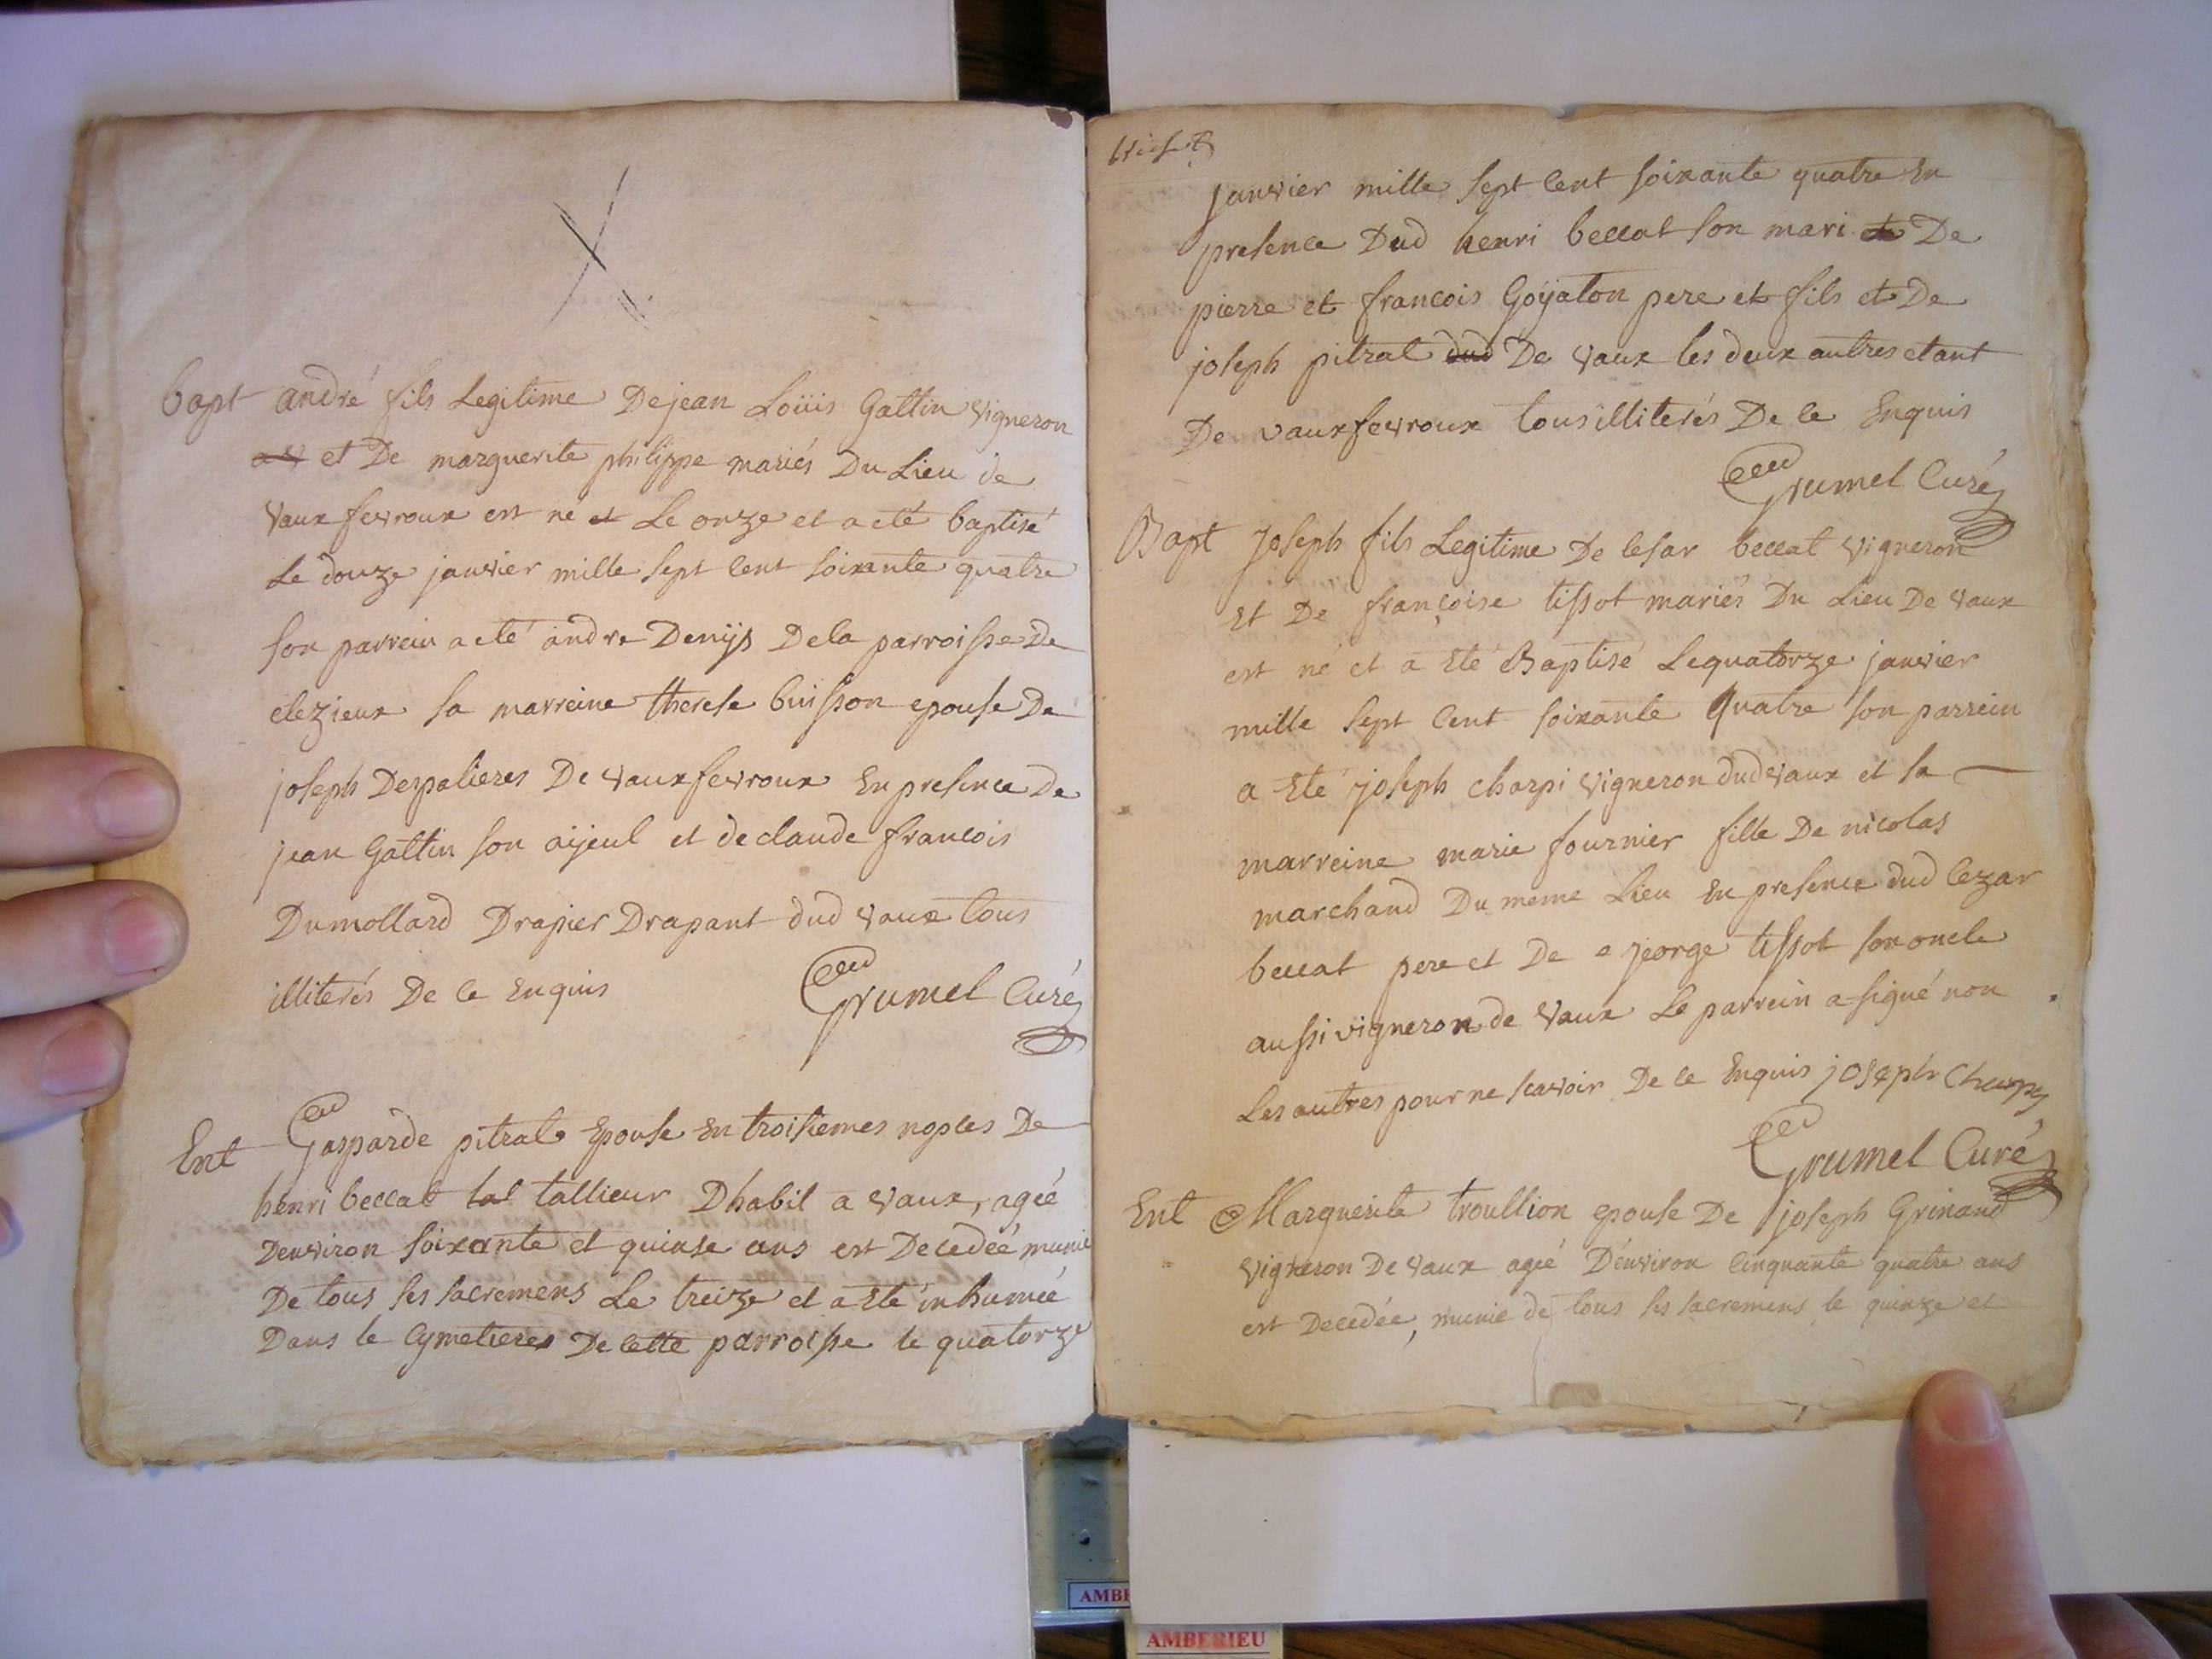 Bapt andré fils Legitime De jean Loüis Gattin vigneron
et De marguerite philippe mariés Du Lieu de
Vaux fevroux est né et Le onze et a eté baptisé
Le douze janvier mille sept cent soixante quatre
son parrein a eté andre Denijs De la parroisse De
clezieux sa marreine therese buisson epouse De
joseph Despalieres De vaux fevroux En presence De
jean Gattin son aijeul et de claude francois
Dumollard Drapier Drapant dud vaux tous
illiterés De ce Enquis Grumel Curé
Ent Gasparde pitrat Epouse En troisiemes nopces De
henri beccat tal tallieur Dhabil a vaux, ageé
Denviron soixante et quinse ans est Decedeé munie
De tous ses sacremens Le treize et a Eté inhumeé
Dans le Cymetieres De cette parroisse le quatorze
janvier mille sept cent soixante quatre En
presence Dud henri beccat son mari et De
pierre et francois Goÿaton pere et fils et De
joseph pitrat dud De vaux les deux autres etant
De vauxfevroux tous illiterés De ce Enquis
Grumel Curé
Bapt Joseph fils Legitime De Cesar beccat vigneron
Et De françoise tissot mariés Du Lieu De vaux
est né et a Eté Baptisé Le quatorze janvier
mille sept Cent soixante quatre son parrein
a Eté joseph charpi vigneron dud vaux et sa
marreine marie fournier fille De nicolas
marchand Du meme Lieu En presence dud Cezar
beccat pere et De e jeorge tissot son oncle
aussi vigneron de vaux Le parrein a signé non
Les autres pour ne scavoir De ce Enquis joseph Charpy
Grumel Curé
Ent Marguerite troullion epouse De joseph Grinand
vigneron De vaux ageé D'énviron Cinquante quatre ans
est Decedée, munie de tous ses sacremens le quinze et
AMBE
AMBERIEU